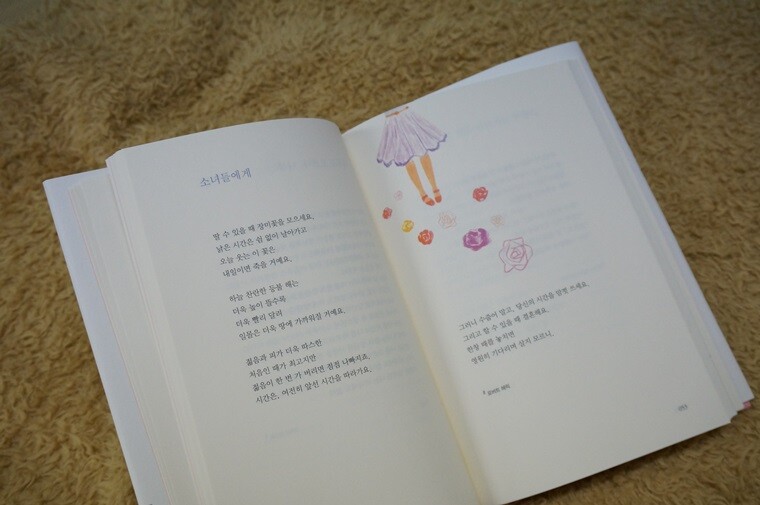 소녀들에게
할 수 있을 때 장미꽃을 모으세요.
낡은 시간은 쉼 없이 날아가고
오늘 웃는 이 꽃은
내일이면 죽을 거예요.
하늘 찬란한 등불 해는
더욱 높이 뜰수록
더욱 빨리 달려
일몰은 더욱 땅에 가까워질 거예요.
젊음과 피가 더욱 따스한
처음인 때가 최고지만
젊음이 한 번 가 버리면 점점 나빠지죠.
시간은, 여전히 앞선 시간을 따라가요.
그러니 수줍어 말고, 당신의 시간을 맘껏 쓰세요.
그리고 할 수 있을 때 결혼해요.
한창 때를 놓치면
영원히 기다리며 살지 모르니.
로버트 헤릭